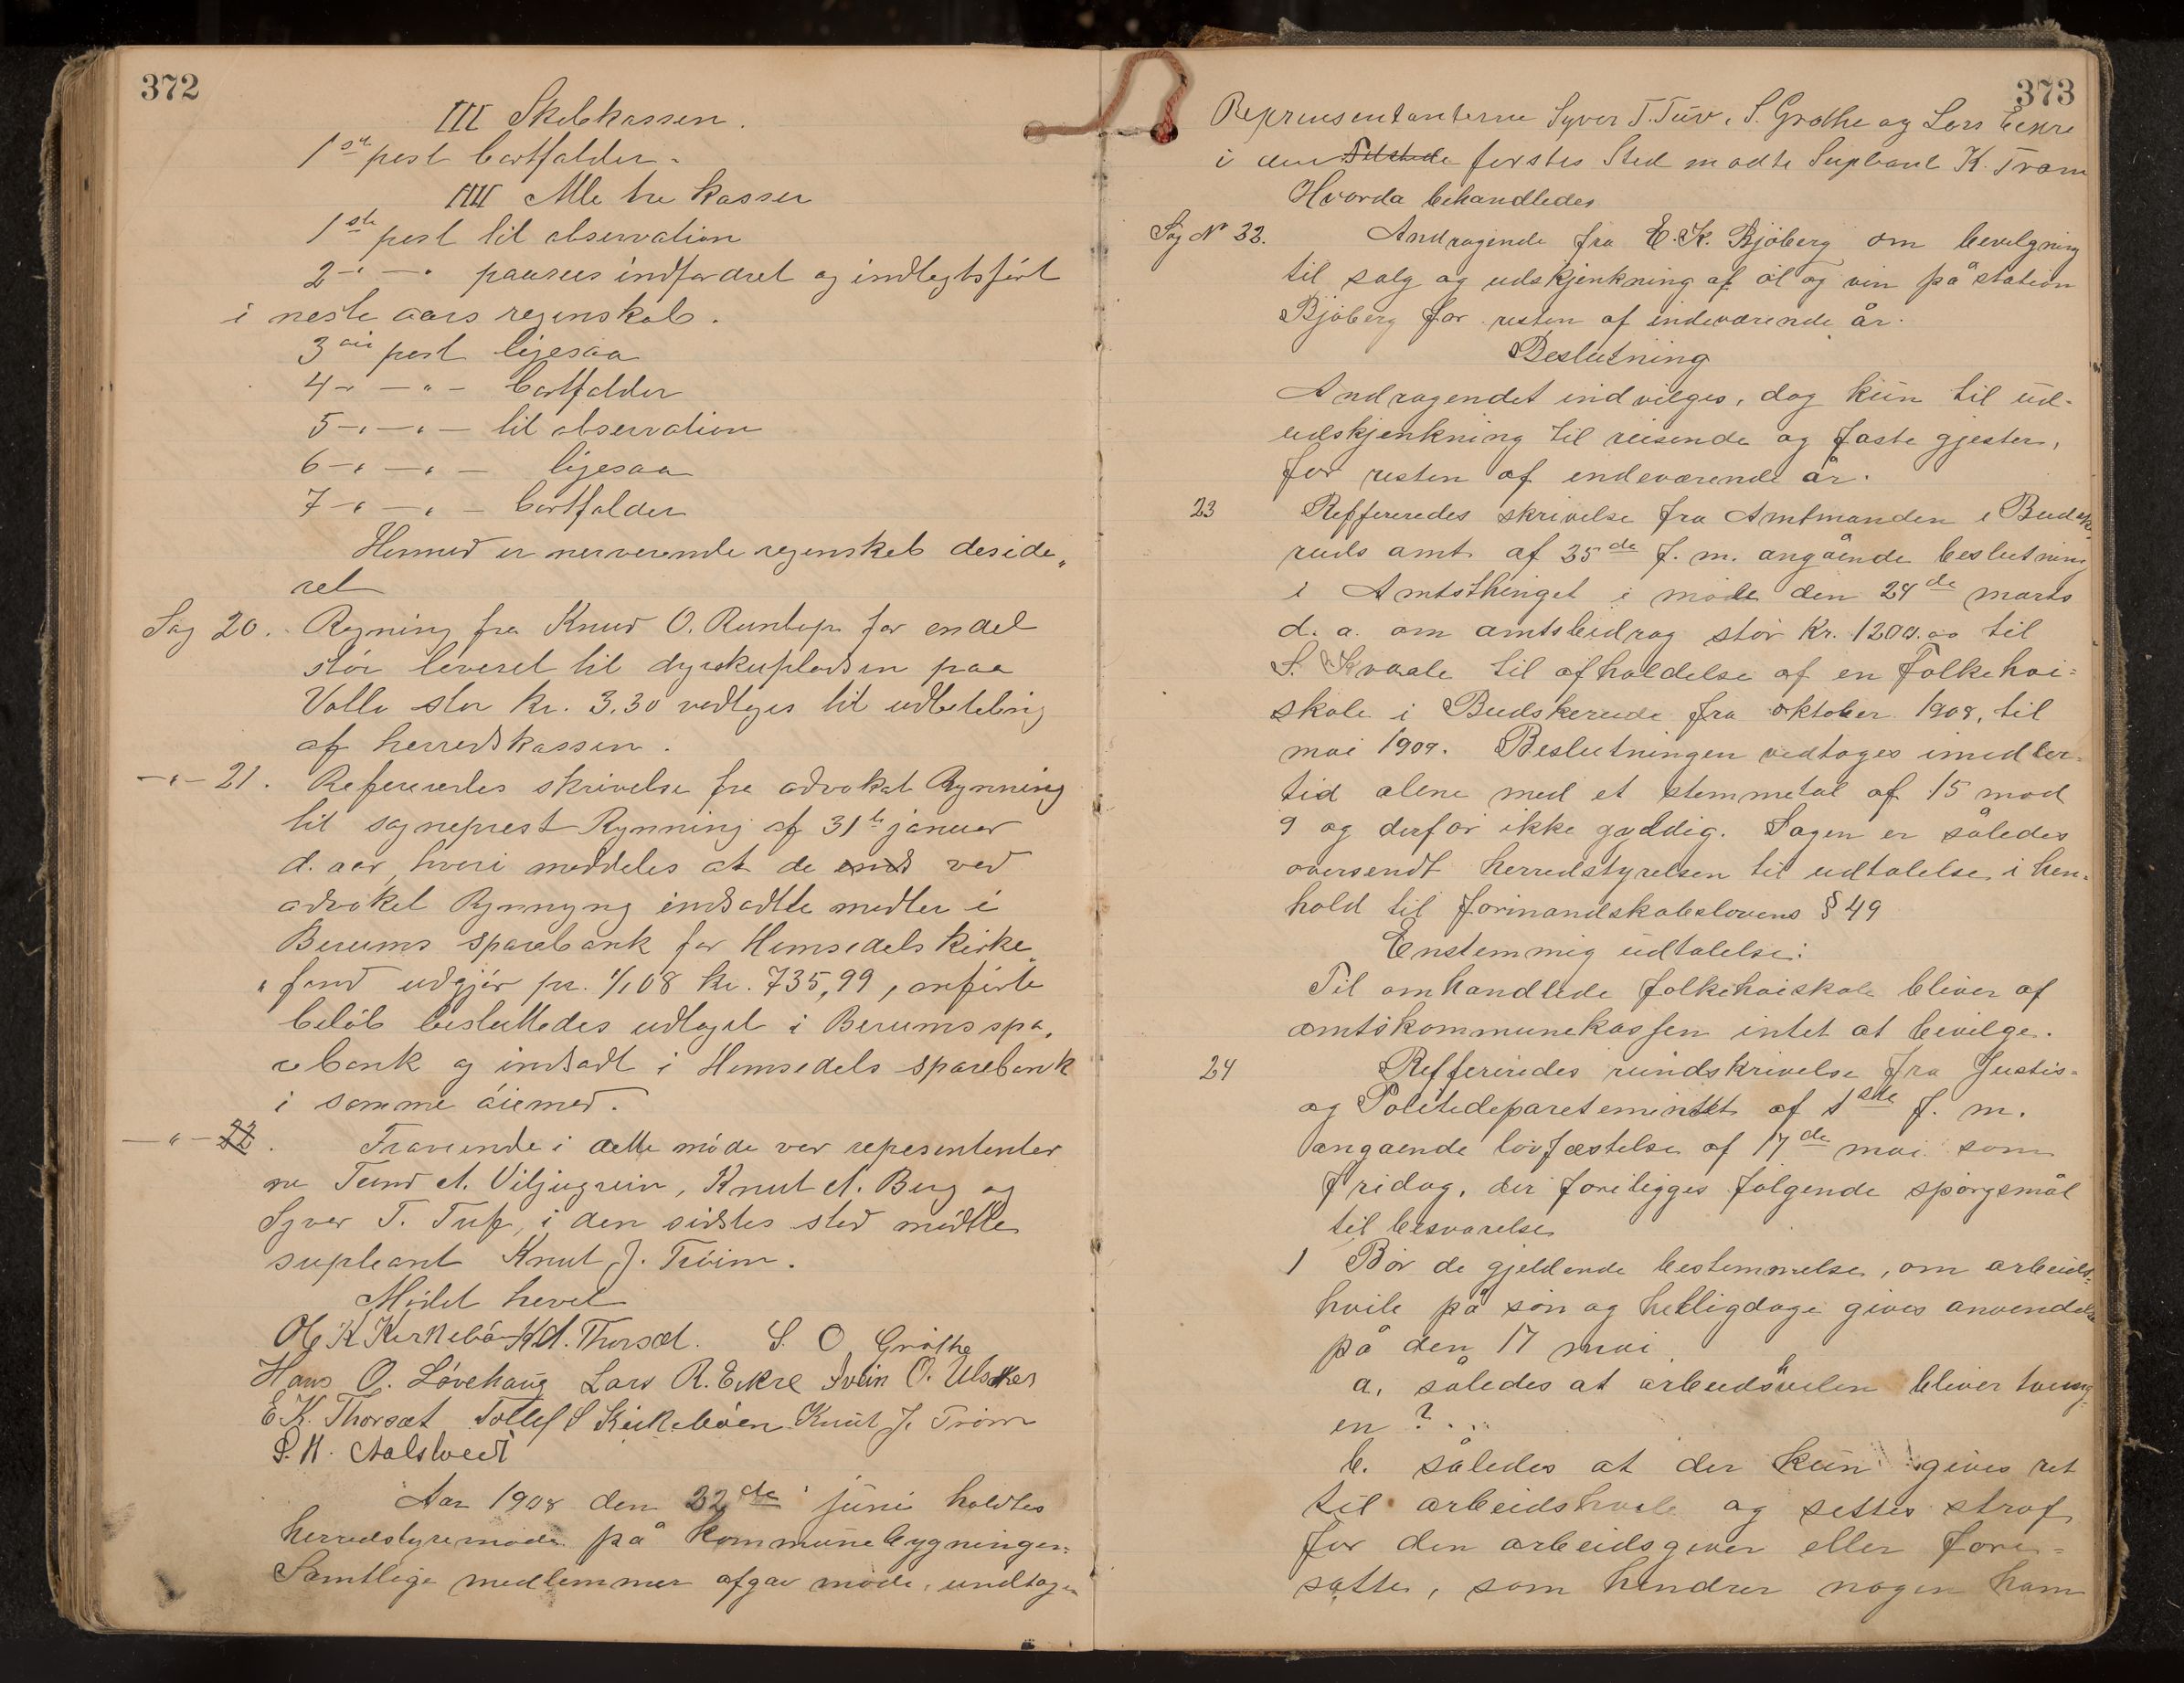 372
III Skolekassen.
1ste post bortfalder.
IIII Alle tre kasser
1ste post til observation
2-"-" paasees indfordret og indtegtsført
i neste aars regnskab.
3die post ligesaa
4-"-"- bortfalder
5-"-"- til observation
6-"-"- ligesaa
7-"-"- bortfalder
Hermed er nerverende regnskab deside„
ret
Sag 20. Regning fra Knud O. for endel
stör leveret til dyrskupladsen paa
Valla stor kr. 3.30 vedtages til udbetaling
af herredskassen.
-"- 21. Refereredes skrivelse fra advokat Rynning
til sogneprest Rynning af 31te januar
d. aar, hvori meddeles at de ends ved
advokat Rynnyng indsadtte midler i
Berums sparebank for Hemsedals kirke„
„fond udgjör pr. 1/1 08 kr. 735,99, anförte
belöb besluttedes udtaget i Berums spa„
rebank og indsadt i Hemsedals sparebank
i samme öiemed.
-"- 22. Fraverende i dette möde var represententer
ne Tand A. Viljugrein, Knut A. Berg og
Syver T. Tuf, i den sidstes sted mödtte
supleant Knut J. Tröim.
Mödet hevet
Ole K Kirkebö K A. Thorset. S. O Gröthe
Hans O. Lövehaug Lars R. Eikre Svein O. Ulsaker
E K. Thorset Tollef S Kirkeböen Knut J. Tröim
P. H. Aalstveit
Aar 1908 den 22de juni holdtes
herredstyremöde på kommunebygningen.
Samtlige medlemmer afgav möde, undtagen
373
Reprensentanterne Syver T. Tuv, S. Grøthe og Lars Eikre
i den Tilstede førstes Sted mødte Supleant K. Trøim
Hvorda behandledes
Sag No 22. Andragende fra E. K. Bjøberg om bevilgning
til salg og udskjenkning af øl og vin på station
Bjøberg for resten af indeværende år.
Beslutning
Andragendet indvilges, dog kun til ud-
udskjenkning til reisende og faste gjester,
for resten af endeværende år.
23 Reffereredes skrivelse fra Amtmanden i Budske-
ruds amt af 25de f. m. angående beslutning
i Amtsthinget i møde den 24de marts
d. a. om amtsbidrag stór kr. 1200.00 til
S. Kvaale til afholdelse af en Folkehøi=
skole i Budskerude fra oktober 1908, til
mai 1909. Beslutningen vedtoges imidler-
tid alene med et stemmetal af 15 mod
9 og derfor ikke gyldig. Sagen er således
oversendt herredstyrelsen til udtalelse i hen-
hold til formandskabslovens § 49
Enstemmig udtalelse:
Til omhandlede folkehøiskole bliver af
amtskommunekassen intet at bevilge.
24 Reffereredes rundskrivelse fra Justis-
og Politedeparetementet af 1ste f. m.
angaende lovfæstelse af 17de mai som
fridag, der foreligges følgende spørgsmål
til besvarelse
1 Bør de gjeldende bestemmelse, om arbeids-
hvile på søn og helligdage gives anvendelse
på den 17 mai
a. således at arbeidsvilen bliver tvung-
en ? . . .
b. således at der kun gives ret
til arbeidshvile og settes straf
for den arbeidsgiver eller fore-
satte, som hendrer nogen ham